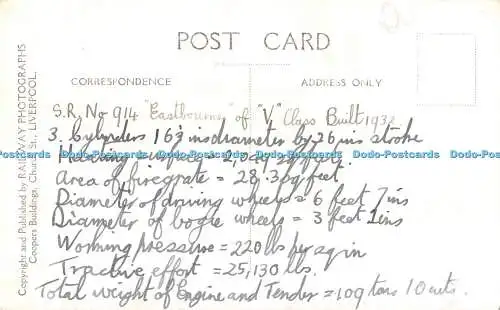 POST CARD
CORRESPONDENCE
ADDRESS ONLY
Copyright and Published by RAILWAY PHOTOGRAPHS
Coopers Buildings, Church St., LIVERPOOL.
S.R. No 914 "Eastbourne" of "V" Class Built 193
3. Cylinders 16½ ins diameter by 26 ins stroke
Dodo-Postcards Dodo-Postcards Dodo-Postcards Dodo-Postcards Dodo-Postcards
Heating surface
Area of firegrate = 28.3 sq feet
Diameter of driving wheels = 6 feet 7 ins
Diameter of bogie wheels = 3 feet 1 ins
Working Pressure = 220 lbs per sq in
Tractive effort = 25,130 lbs.
Total weight of Engine and Tender = 109 tons 10 cwts.